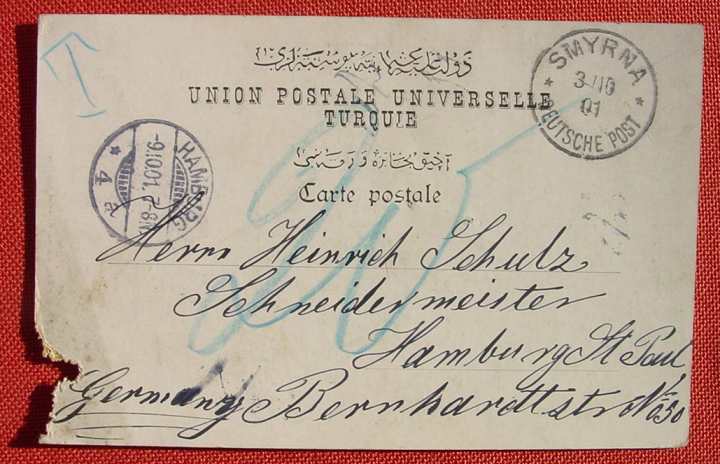 T
دولت علیهٔ عثمانیه پوسته‌لری
UNION POSTALE UNIVERSELLE
TURQUIE
آچیق مخابره ورقه‌سی
Carte postale
SMYRNA
3/10
01
DEUTSCHE POST
HAMBURG
9.10.01. 7-8N
* 4 *
20
Herrn Heinrich Schulz
Schneidermeister
Hamburg St Paul
Germany Bernhardtstr No